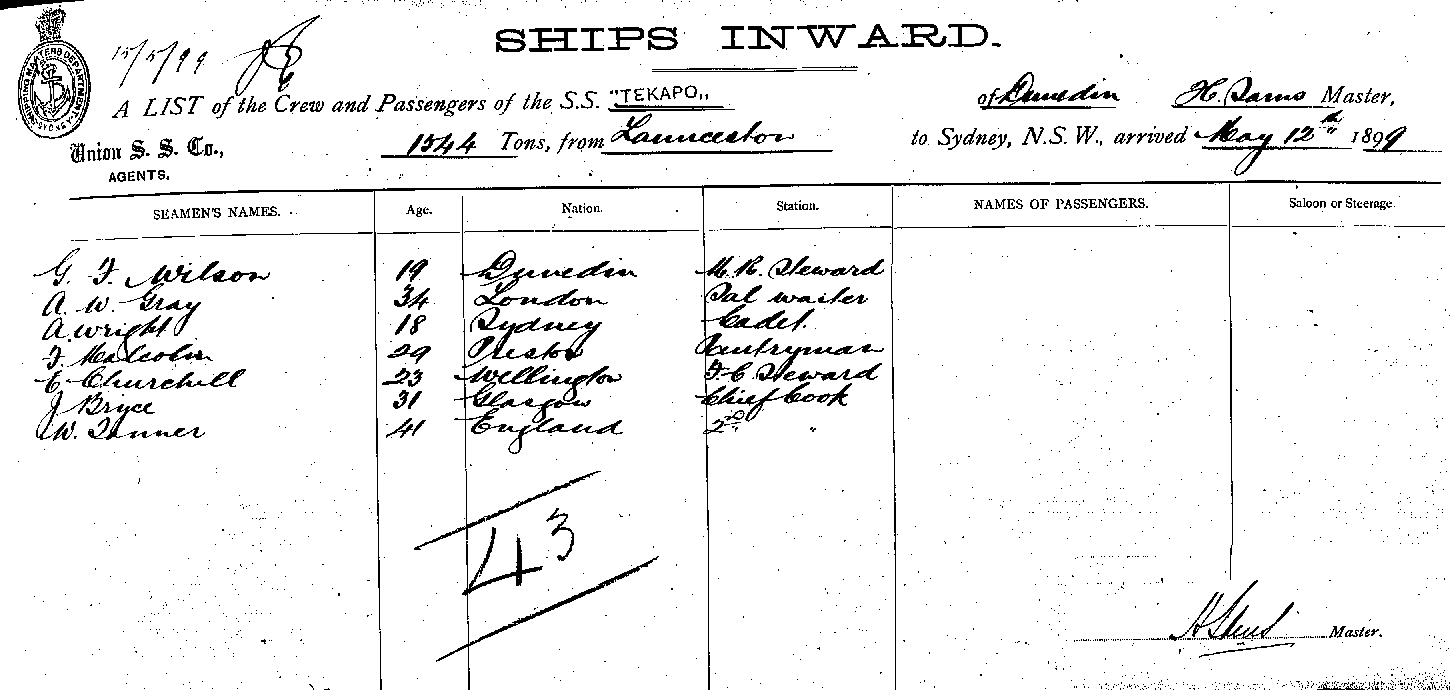 SHIPS INWARD.
15/5/99
A LIST of the Crew and Passengers of the S.S. "TEKAPO,, of Dunedin H. Sams Master,
Union S. S. Co., 1544 Tons, from Launceston to Sydney, N.S.W., arrived May 12th 1899
AGENTS.
SEAMEN'S NAMES. Age. Nation. Station. NAMES OF PASSENGERS. Saloon or Steerage.
G. F. Wilson 19 Dunedin M. R. Steward
A. W. Gray 34 London Sal waiter
A. Wright 18 Sydney Cadet.
F. Malcolm 29 Preston Pantryman
E Churchill 23 Wellington F. C. Steward
J Bryce 31 Glasgow Chief Cook
W. Tanner 41 England 2nd "
43
Master.